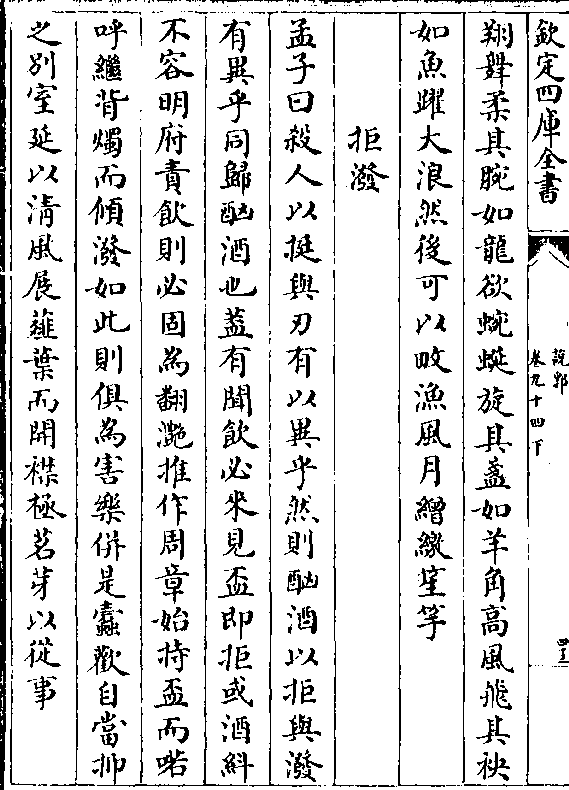 欽定四庫全書
說郛
卷九十四下
翔舞柔其腕如龍欲蜿蜒旋其盞如羊角高風飛其袂
如魚躍大浪然後可以畋漁風月繒繳笙竽
拒潑
孟子曰殺人以挺與刃有以異乎然則酗酒以拒與潑
有異乎同歸酗酒也葢有聞飲必來見盃即拒或酒糾
不容明府責飲則必固為翻灔推作周章始持盃而喏
呼繼背燭而傾潑如此則俱為害樂併是蠧歡自當抑
之別室延以清風展薤葉而開襟極茗芽以從事